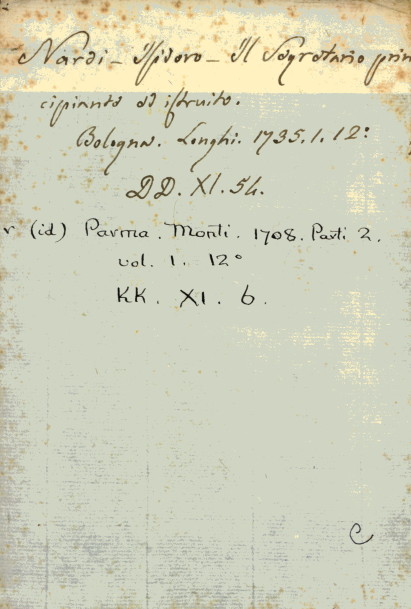 Nardi - Isidoro - Il Segretario prin
cipiante ed istruito.
Bologna. Longhi. 1735. 1. 12:
DD. XI. 54.
r (id) Parma. Monti. 1708. Parti 2.
vol. 1. 12°
KK. XI. 6.
C